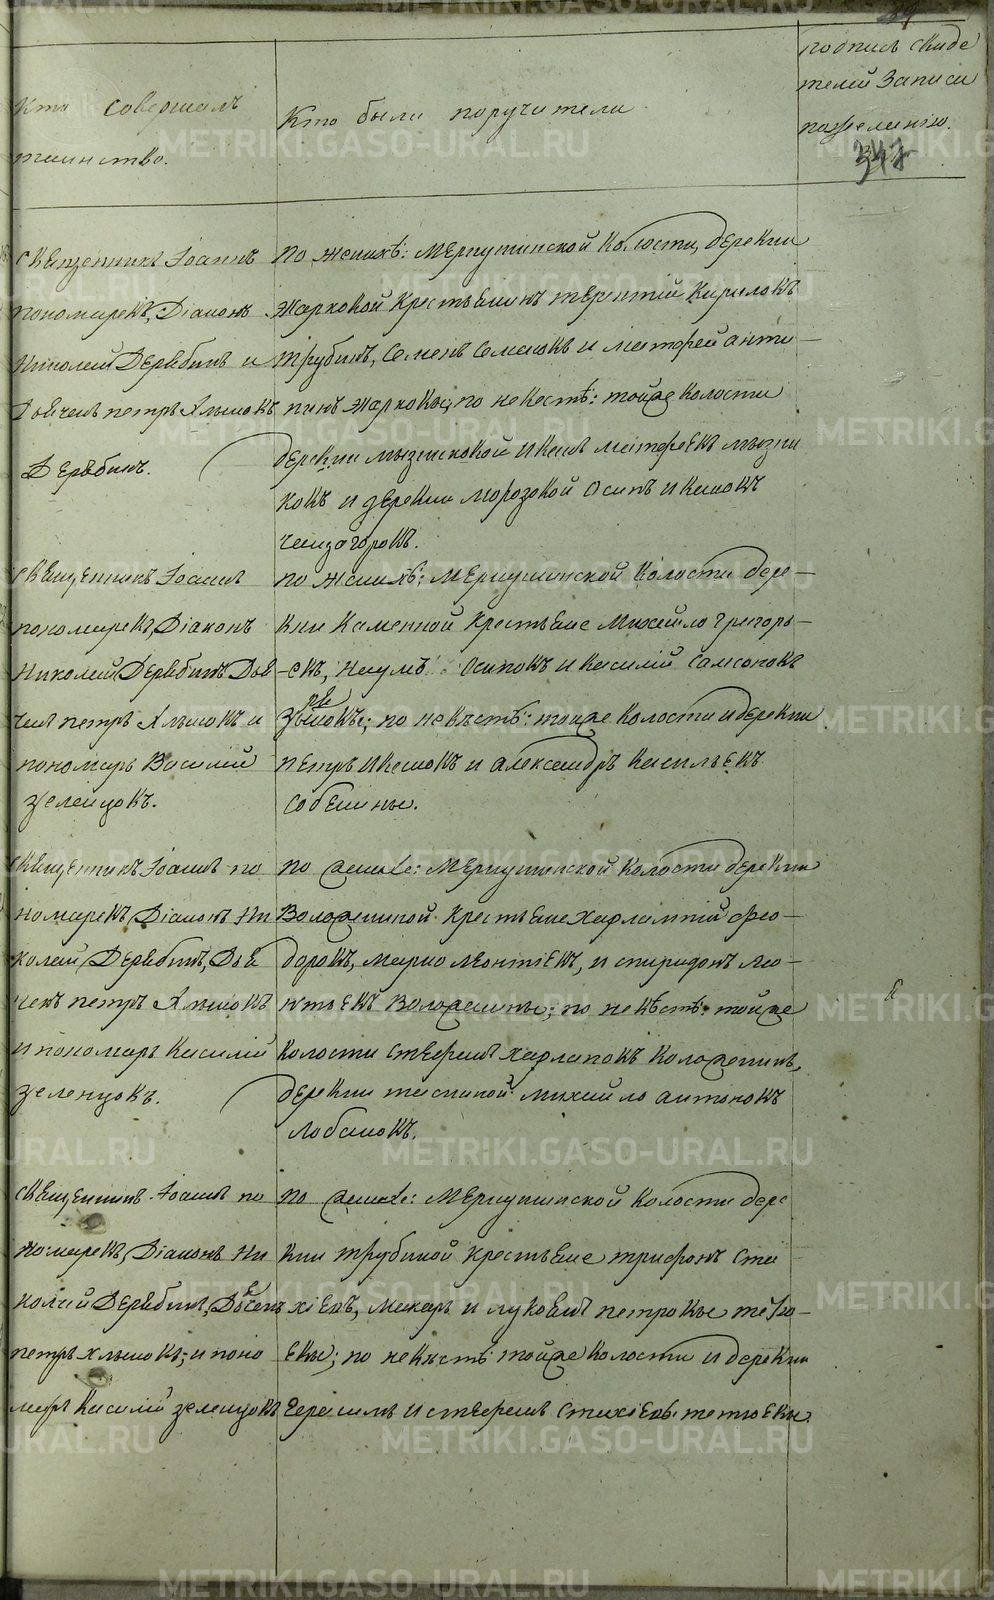 Кто совершалъ
таинство.
Кто были поручители
подпись свиде
телей записи
по желанію.
347
Священникъ Іоаннъ
Пономаревъ, Діаконъ
Николай Дерябинъ и
Дьячекъ петръ Хлыновъ
Дерябинъ.
По женихѣ: Меркушинской волости, деревни
Жарковой крестьянинъ терентій Кириловъ
Трубинъ, Семенъ Семеновъ и матфей анти-
пинъ Жарковы; по невестѣ: тойже волости
деревни мызниковой Иванъ матфеевъ мызни
ковъ и деревни Морозовой Осипъ Ивановъ
Священникъ Іоаннъ
пономаревъ, Діаконъ
Николай Дерябинъ Дья
чекъ петръ Хлыновъ и
пономарь Василий
зеленцовъ.
по женихѣ: Меркушинской волости дере-
вни Каменной крестьяне Михайло Григорь-
евъ, Наумъ Осиповъ и Василій Самсоновъ
по невѣстѣ: тойже волости и деревни
петръ Ивановъ и александръ васильевъ
Собянины.
Священникъ Іоаннъ по
номаревъ, Діаконъ Ни
колай Дерябинъ, Дья
чекъ петръ Хлыновъ
и пономарь Василій
зеленцовъ.
по женихе: Меркушинской волости деревни
Воложениной крестьяне харлампій фео-
доровъ, марко леонтіевъ, и спиридонъ лео-
нтьевъ Воложенины; по невѣстѣ: тойже
волости Стефанъ харламовъ воложенинъ,
деревни михайло антоновъ
лобановъ.
Священникъ Іоаннъ по
номаревъ, Діаконъ Ни
колай Дерябинъ, Дьячекъ
петръ хлыновъ; и поно
марь Василій зеленцовъ
по женихе: Меркушинской волости дере
вни трубиной крестьяне трифонъ Ста
хіевъ, макаръ и луковъ петровы тетю-
евы; по невѣстѣ: тойже волости и деревни
Герасимъ и стефанъ Стахіевы тетюевы
METRIKI.GASO-URAL.RU